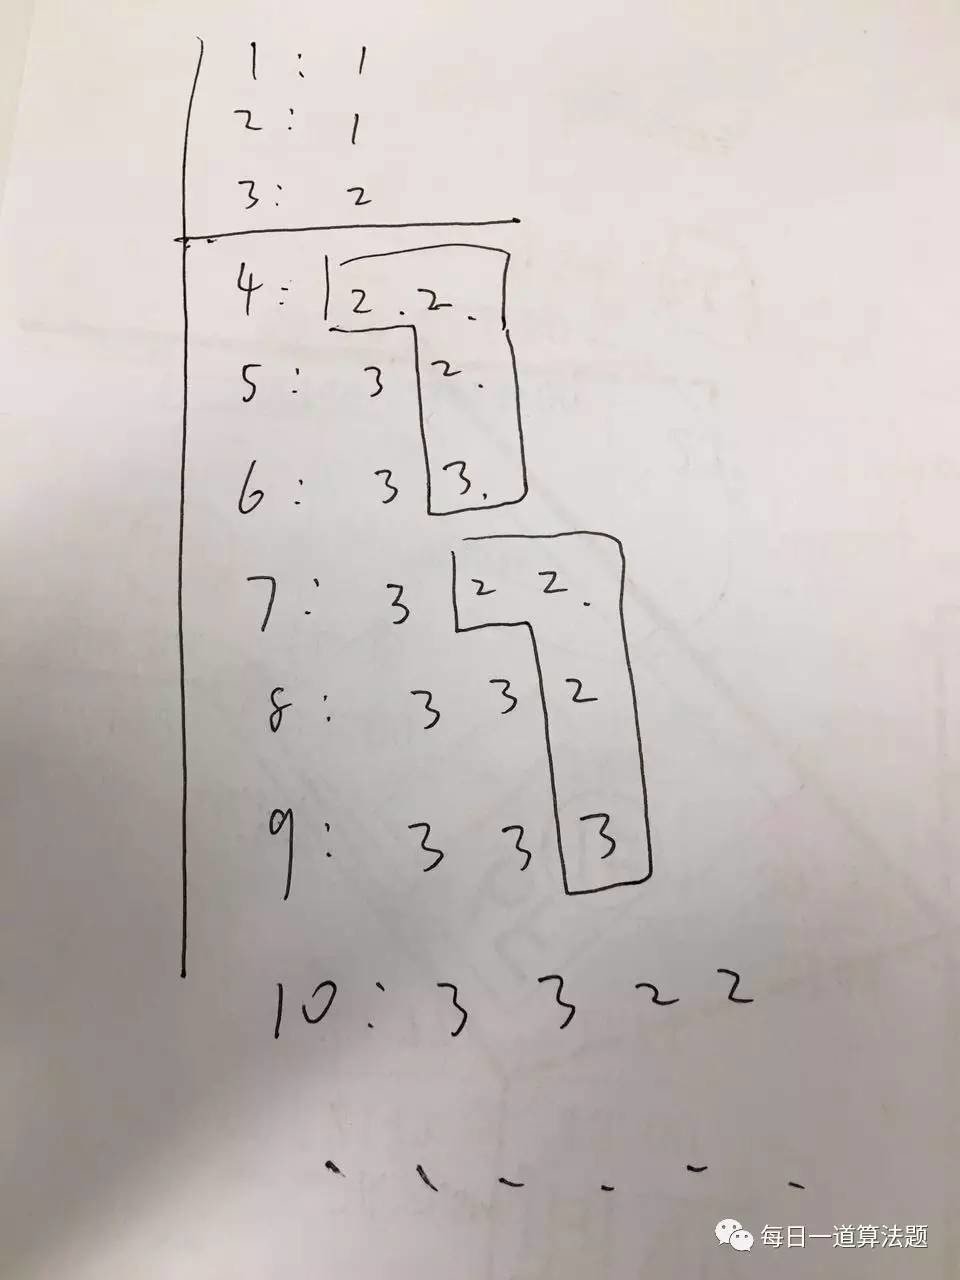 1: 1
2: 1
3: 2
4: 2.2.
5: 3 2.
6: 3 3.
7: 3 2 2.
8: 3 3 2
9: 3 3 3
10: 3 3 2 2
每日一道算法题